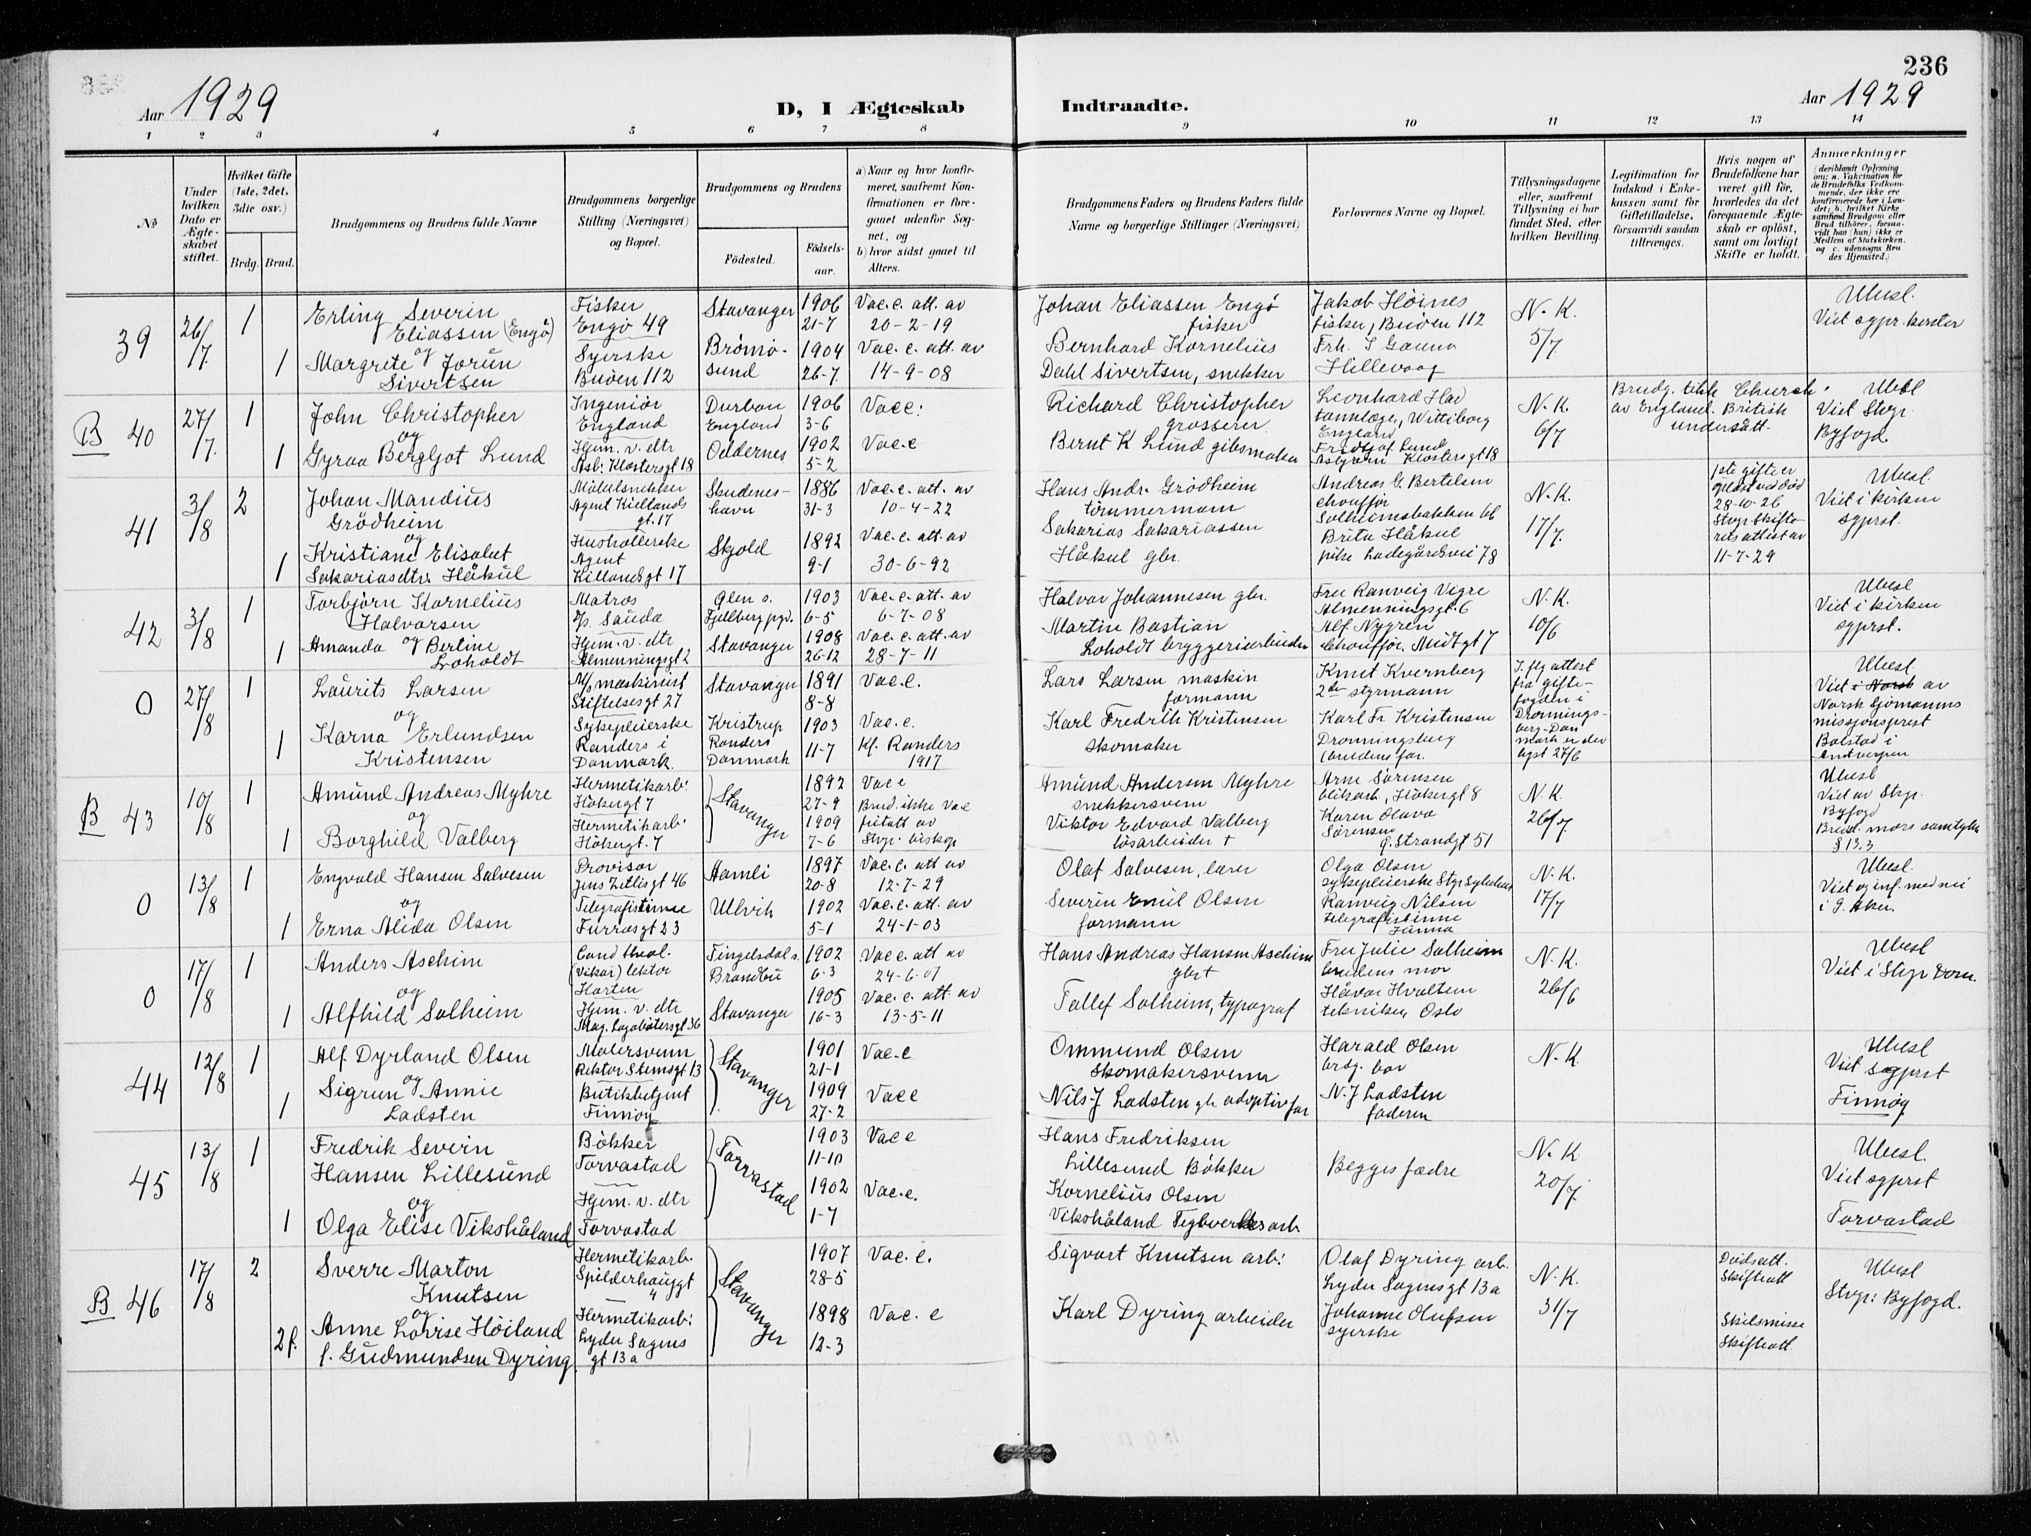 236
Aar 1929
D, I Ægteskab
Indtraadte.
Aar 1929
1 2 3 4 5 6 7 8 9 10 11 12 13 14
No
Under hvilken Dato er Ægteskabet stiftet.
Hvilket Gifte (1ste, 2det, 3die osv.)
Brdg. Brud.
Brudgommens og Brudens fulde Navne
Brudgommens borgerlige Stilling (Næringsvei) og Bopæl.
Brudgommens og Brudens
Födested.
Födselsaar.
a) Naar og hvor konfirmeret, saafremt Konfirmationen er foregaaet udenfor Sognet, og
b) hvor sidst gaaet til Alters.
Brudgommens Faders og Brudens Faders fulde Navne og borgerlige Stillinger (Næringsvei)
Forlovernes Navne og Bopæl.
Tillysningsdagene eller, saafremt Tillysning ei har fundet Sted, efter hvilken Bevilling.
Legitimation for Indskud i Enkekassen samt for Giftetilladelse, forsaavidt saadan tillrænges.
Hvis nogen af Brudefolkene har været gift för, hvorledes da det foregaaende Ægteskab er oplöst, samt om lovligt Skifte er holdt.
Anmærkninger
(deriblandt Oplysning om: a. Vakcination for de Brudefolks Vedkommende, der ikke ere konfirmerede her i Landet; b. hvilket Kirkesamfund Brudgom eller Brud tilhörer, forsaavidt han (hun) ikke er Medlem af Statskirken, og c. udensogns Brudes Hjemsted.)
39
26/7
1
Erling Severin
Eliassen (Engö)
og
1
Margrete Jorun
Sivertsen
Fisker
Engö 49
Syerske
Buöen 112
Stavanger
Brömösund
1906
21-7
1904
26-7.
Vac.c. att. av
20-2-19
Vac. c. att. av
14-9-08
Johan Eliassen Engö
fisker
Bernhard Kornelius
Dahl Sivertsen, snekker
Jakob Höines
fisker, Buöen 112
Hillevaag
N. K.
5/7.
Ubesl.
B 40
27/7.
1
John Christopher
og
1
Gyraa Bergljot Lund
Ingeniör
England
Hjem. v. dtr
Klostersgt 18
Durban
England
Oddernes
1906
3-6
1902
5-2
Vacc:
Vac.c
Richard Christopher
grosserer
Bernt K Lund gibsmaker
England
Fridtjof Lund
Klostersgt 18
N. K.
6/7
Brudg. tilh Church
av England. British
undersått.
Ubesl
Viet Stvgr.
Byfogd.
41
3/8
2
Johan Mandius
Grödheim
og
1
Kristiane Elisabet
Sakariasdtr. Håkul
Möbelsnekker
Agent Kiellands
gt. 17
Husholderske
Agent
Killandsgt 17
Skudeneshavn
Skjold
1886
31-3
1892
9-1
Vac.c. att. av
10-4-22
Vac.c att. av
30-6-92
Hans Andr. Grödheim
tömmermann
Sakarias Sakariassen
Håkul gbr.
Andreas G. Bertelsen
choufför
Solheimsbakken 66
Brita Håkul
pike Ladegårdsvei 78
N. K.
17/7.
1ste gifte er
oplöst ved död
28-10-26
Stvgr Skifterets attest av
11-7-29
Ubesl.
Viet i kirken
sgprst.
42
3/8
1
Torbjörn Kornelius
Halvorsen
og
1
Amanda Berline
Loholdt
Matros
Sauda
Hjem. v. dtr
Almenningsgt 2
Ölen s.
Fjellberg pgd.
Stavanger
1903
6-5
1908
26-12
Vac.c. att. av
6-7-08
Vac.c. att. av
28-7-11
Halvor Johannesen gbr.
Martin Bastian
Loholdt bryggeriarbeider
Fru Ranveig Vigre
Almenningsgt. 6
Alf Nygren
Chouffør, Midtgt 7
N. K.
10/6
Ubesl
Viet i kirken
sgprst.
0
27/8
1
Laurits Larsen
og
1
Karna Erlundsen
Kristensen
M/s maskinist
Stiftelsesgt 27
Sykepleierske
Randers i
Danmark.
Stavanger
Kristrup
Randers
Danmark
1891
8-8
1903
11-7
Vac. c.
Vac. c.
kf. Randers
1917
Lars Larsen maskin
formann
Karl Fredrik Kristensen
skomaker
Knut Kvernberg
2den styrmann
Karl Fr Kristensen
Dronningsberg
brudens far.
I. flg attest
fra giftefogden i
Dronningsberg-Danmark er der
lyst 27/6
Ubesl
Viet i Norsk av
Norsk Sjömanns
missjonsprest
Bolstad i
Antverpen
B 43
10/8
1
Amund Andreas Myhre
og
1
Borghild Valberg
Hermetikarb:
Hökergt 7
Hermetikarb:
Hökergt. 7
Stavanger
1892
27-9
1909
7-6
Vac c
Brud. ikke Vac
fritatt av
Stvgr. biskop
Amund Andersen Myhre
snekkersvenn
Viktor Edvard Valberg
lösarbeider †
Arne Sörensen
blikarb, Hökergt 8
Karen Olava
Sörensen
Ö. Strandgt 51
N. K.
26/7.
Ubesl
Viet av Stvgr.
Byfogd
Brud. mors samtykke
§ 13.3
0
13/8
1
Engvald Hansen Salvesen
og
1
Erna Alida Olsen
Provisor
Jens Zetlitsgt 46
Telegrafistinne
Furrasgt 23
Aamli
Ullvik
1897
20-8
1902
5-1
Vac.c. att av
12-7-29
Vac.c. att. av
24-1-03
Olaf Salvesen, lærer
Severin Emil Olsen
formann
Olga Olsen
sykepleierske Stvgr Sykehus
Ranveig Nilsen
telegrafistinne
N. K.
17/7
Ubesl.
Viet og inf. med nei
i V. Aker.
0
17/8
1
Anders Aschim
og
1
Alfhild Solheim
Cand theol.
(vikar) lektor
Horten
Hjem. v. dtr
Mag. Lagabötersgt 36
Tingelstad s.
Brandbu
Stavanger
1902
6-3
1905
16-3
Vac c att av
24-6-07
Vac.c. att. av
13-5-11
Hans Andreas Hansen Aschim
gbr †
Tallef Solheim, typograf
Fru Julie Solheim
brudens mor
Håvar Hvalten
tekniker, Oslo
N. K.
26/6
Ubesl
Viet i Stvgr Dom.
44
12/8
1
Alf Dyrland Olsen
og
1
Sigrun Annie
Ladsten
Malersvenn
Rektor Steensgt 13
Butikkbetjent
Finnöy
Stavanger
1901
21-1
1909
27-2
Vac.c
Vac c
Ommund Olsen
Skomakersvenn
Nils J Ladsten gb adoptivfar
Harald Olsen
brdg. bror
N. J Ladsten
faderen
N. K.
Ubesl
Viet sogprst
Finnöy
45
13/8
1
Fredrik Severin
Hansen Lillesund
og
1
Olga Elise Vikshåland
Bökker
Torvastad
Hjem. v. dtr
Torvastad
Torvastad
1903
11-10
1902
1-7
Vac c
Vac.c.
Hans Fredriksen
Lillesund Bökker
Kornelius Olsen
Vikshåland Teglverksarb.
Begges fædre
N. K
20/7
Ubesl.
Viet sgprst
Torvastad
B 46
17/8
2
Sverre Marton
Knutsen
og
2 f.
Anne Lovise Höiland
f. Gudmundsen Dyring.
Hermetikarb.
Spilderhauggt
4
Hermetikarb:
Lyder Sagens
gt 13a
Stavanger
1907
28-5
1898
12-3
Vac. c.
Vac. c
Sigvart Knutsen arb:
Karl Dyring arbeider
Olaf Dyring arb.
Lyder Sagensgt 13a
Johanne Olufsen
syerske
N. K.
31/7
Dödsatt.
Skifteatt
Skilsmisse
Skifteatt
Ubesl
Stvgr: Byfogd.